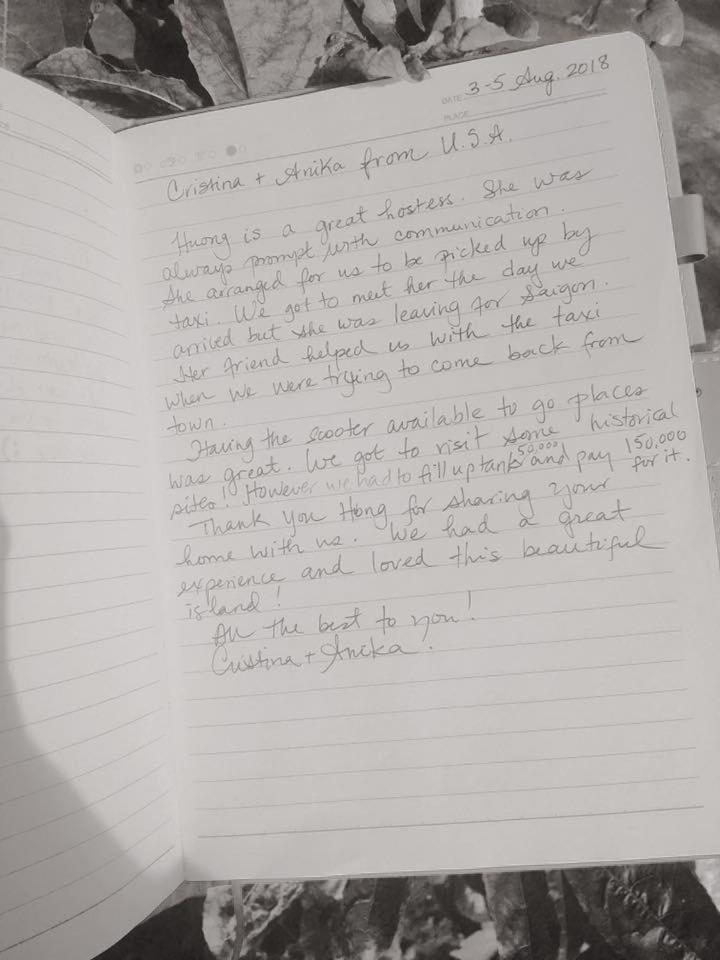 DATE 3-5 Aug. 2018
PLACE
Cristina + Anika from U.S.A.
Huong is a great hostess. She was
always prompt with communication.
She arranged for us to be picked up by
taxi. We got to meet her the day we
arrived but she was leaving for Saigon.
Her friend helped us with the taxi
when we were trying to come back from
town.
Having the scooter available to go places
was great. We got to visit some historical
sites! However we had to fill up tank 50,000 and pay 150,000
for it.
Thank you Hong for sharing your
home with us. We had a great
experience and loved this beautiful
island!
All the best to you!
Cristina + Anika.